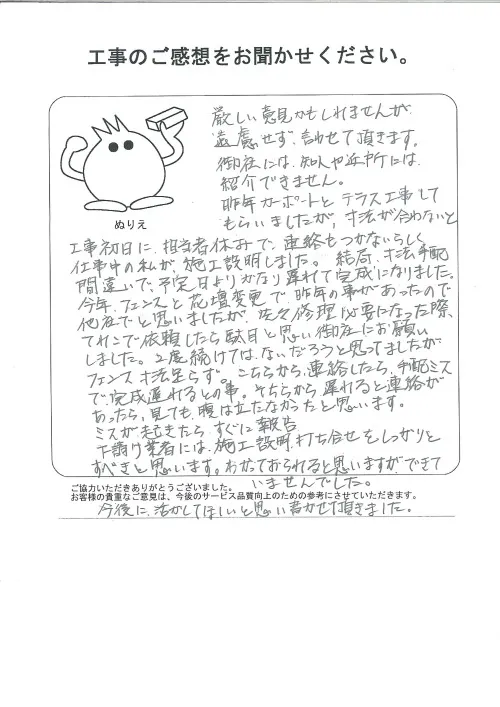 工事のご感想をお聞かせください。
厳しい意見かもしれませんが
遠慮せず、言わせて頂きます。
御社には、知人や近所には、
紹介できません。
昨年カーポートとテラス工事して
もらいましたが、寸法が合わないと
ぬりえ
工事初日に、担当者休みで、連絡もつかないらしく
仕事中の私が、施工説明しました。結局、寸法、手配
間違いで、予定日よりかなり遅れて完成になりました。
今年、フェンスと花壇変更で、昨年の事があったので
他社でと思いましたが、佐々修理必要になった際、
てれこで依頼したら駄目と思い御社にお願い
しました。2度続けては、ないだろうと思ってましたが
フェンス寸法足らず。こちらから、連絡したら、手配ミス
で、完成遅れるとの事。そちらから遅れると連絡が
あったら、見ても、腹は立たなかったと思います。
ミスが起きたら、すぐに報告
下請け業者には、施工説明、打ち合せをしっかりと
すべきと思います。わかっておられると思いますが、できて
いませんでした。
ご協力いただきありがとうございました。
お客様の貴重なご意見は、今後のサービス品質向上のための参考にさせていただきます。
今後に、活かしてほしいと思い書かせて頂きました。